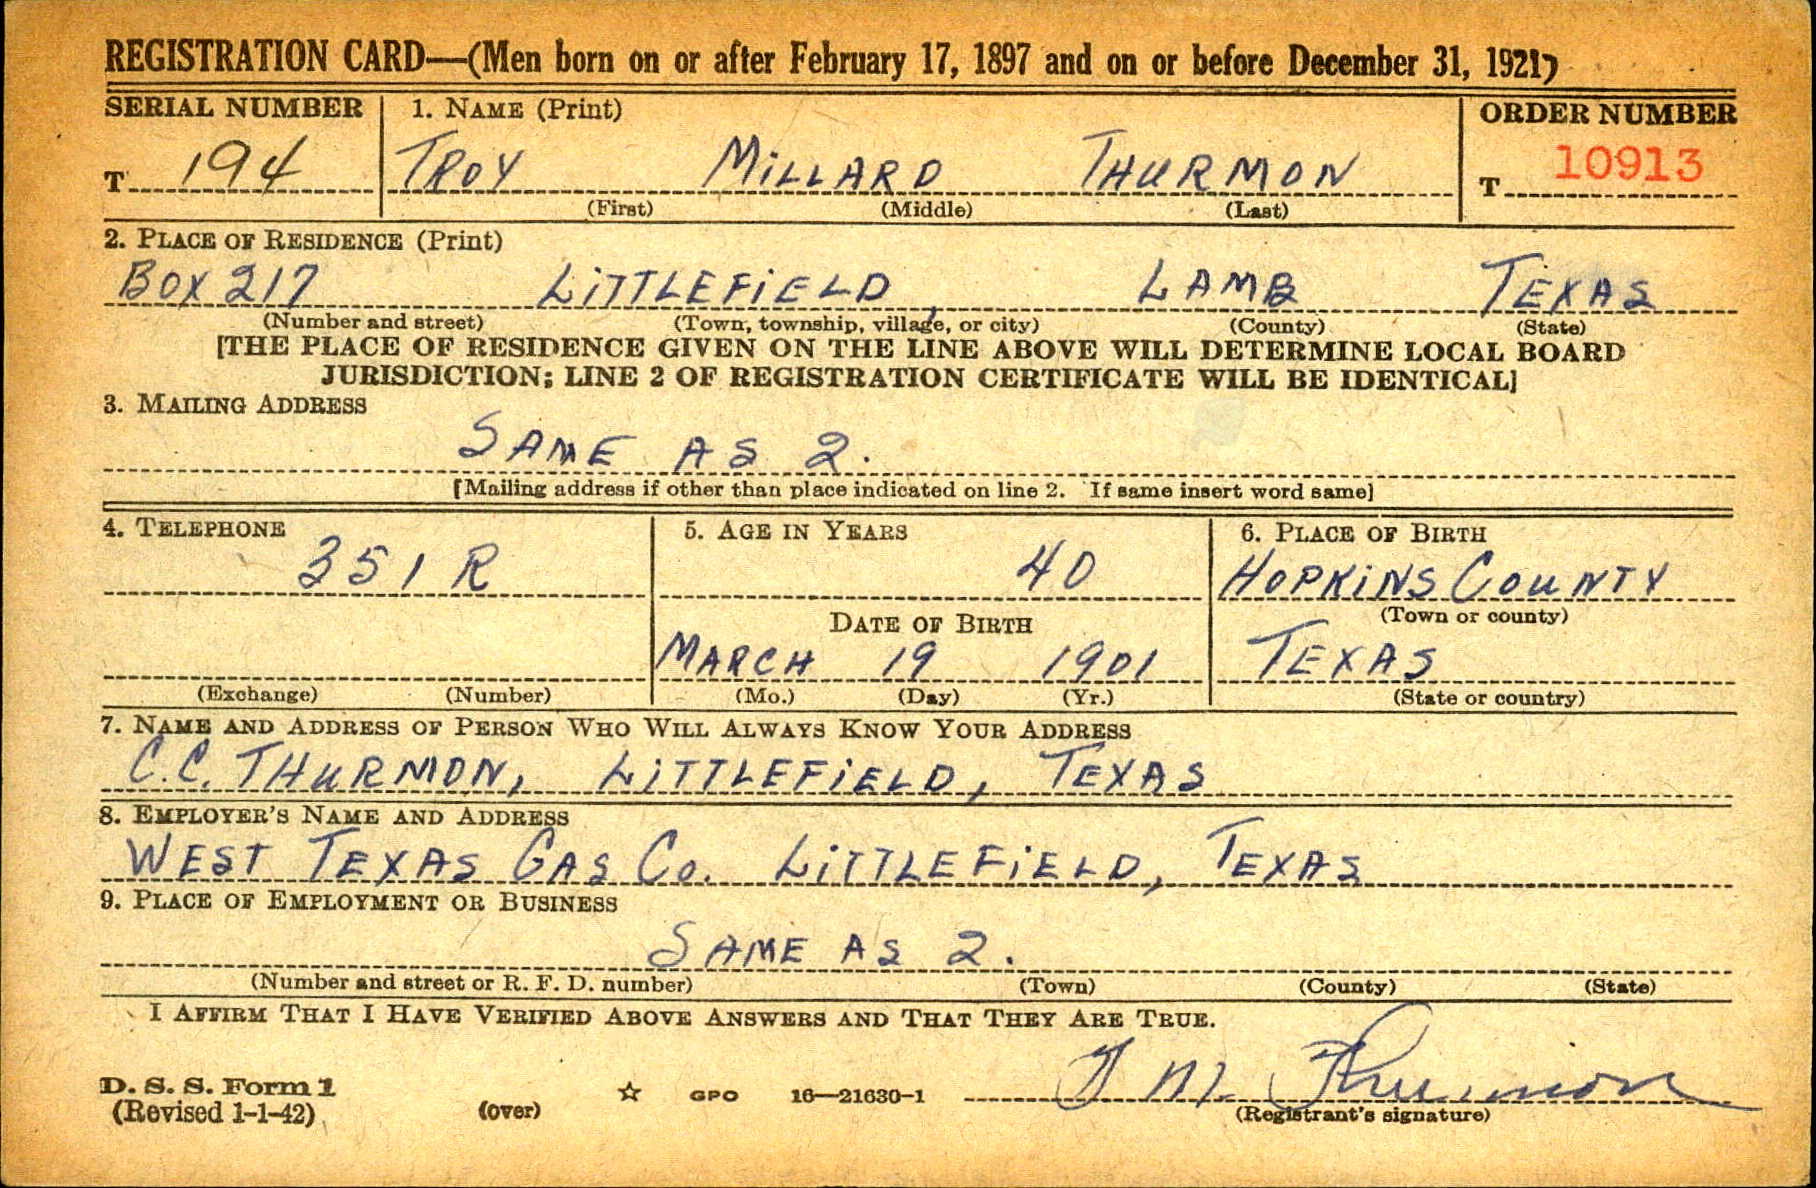 REGISTRATION CARD—(Men born on or after February 17, 1897 and on or before December 31, 1921)
SERIAL NUMBER 1. NAME (Print) ORDER NUMBER
T 194 TROY MILLARD THURMON T 10913
(First) (Middle) (Last)
2. PLACE OF RESIDENCE (Print)
BOX 217 LITTLEFIELD, LAMB TEXAS
(Number and street) (Town, township, village, or city) (County) (State)
[THE PLACE OF RESIDENCE GIVEN ON THE LINE ABOVE WILL DETERMINE LOCAL BOARD
JURISDICTION; LINE 2 OF REGISTRATION CERTIFICATE WILL BE IDENTICAL]
3. MAILING ADDRESS
SAME AS 2.
[Mailing address if other than place indicated on line 2. If same insert word same]
4. TELEPHONE 5. AGE IN YEARS 6. PLACE OF BIRTH
351 R 40 HOPKINS COUNTY
(Town or county)
DATE OF BIRTH
MARCH 19 1901 TEXAS
(Exchange) (Number) (Mo.) (Day) (Yr.) (State or country)
7. NAME AND ADDRESS OF PERSON WHO WILL ALWAYS KNOW YOUR ADDRESS
C.C. THURMON, LITTLEFIELD, TEXAS
8. EMPLOYER'S NAME AND ADDRESS
WEST TEXAS GAS CO. LITTLEFIELD, TEXAS
9. PLACE OF EMPLOYMENT OR BUSINESS
SAME AS 2.
(Number and street or R. F. D. number) (Town) (County) (State)
I AFFIRM THAT I HAVE VERIFIED ABOVE ANSWERS AND THAT THEY ARE TRUE.
D. S. S. Form 1 T M Thurmon
(Revised 1-1-42) (over) ☆ GPO 16—21630-1 (Registrant's signature)